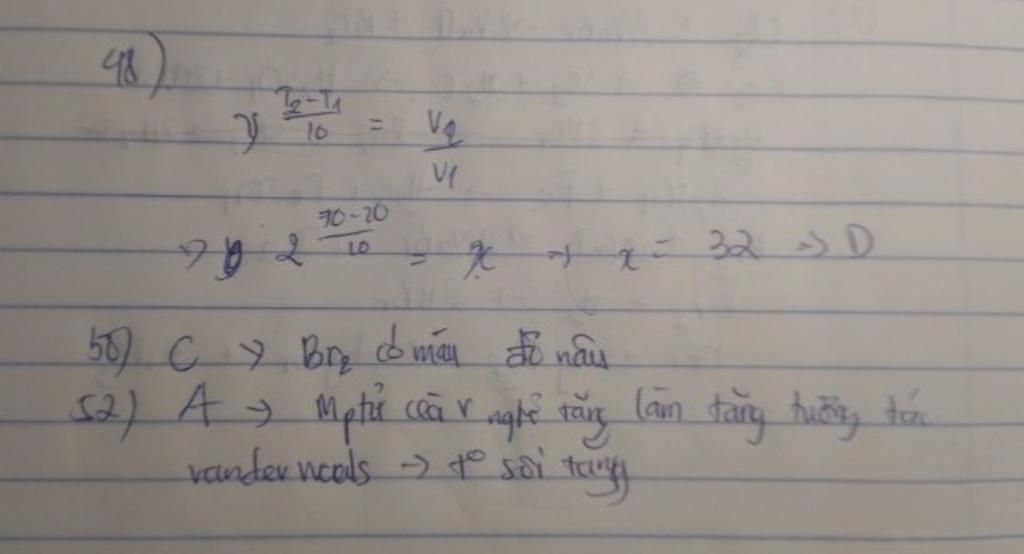 48).
γ^((T2-T1)/10) = V2/V1
=> 2^((70-20)/10) = x → x = 32 => D
50) C → Br2 có màu đỏ nâu
52) A → M ptử và r ngtử tăng làm tăng tương tác
vander waals → t° sôi tăng